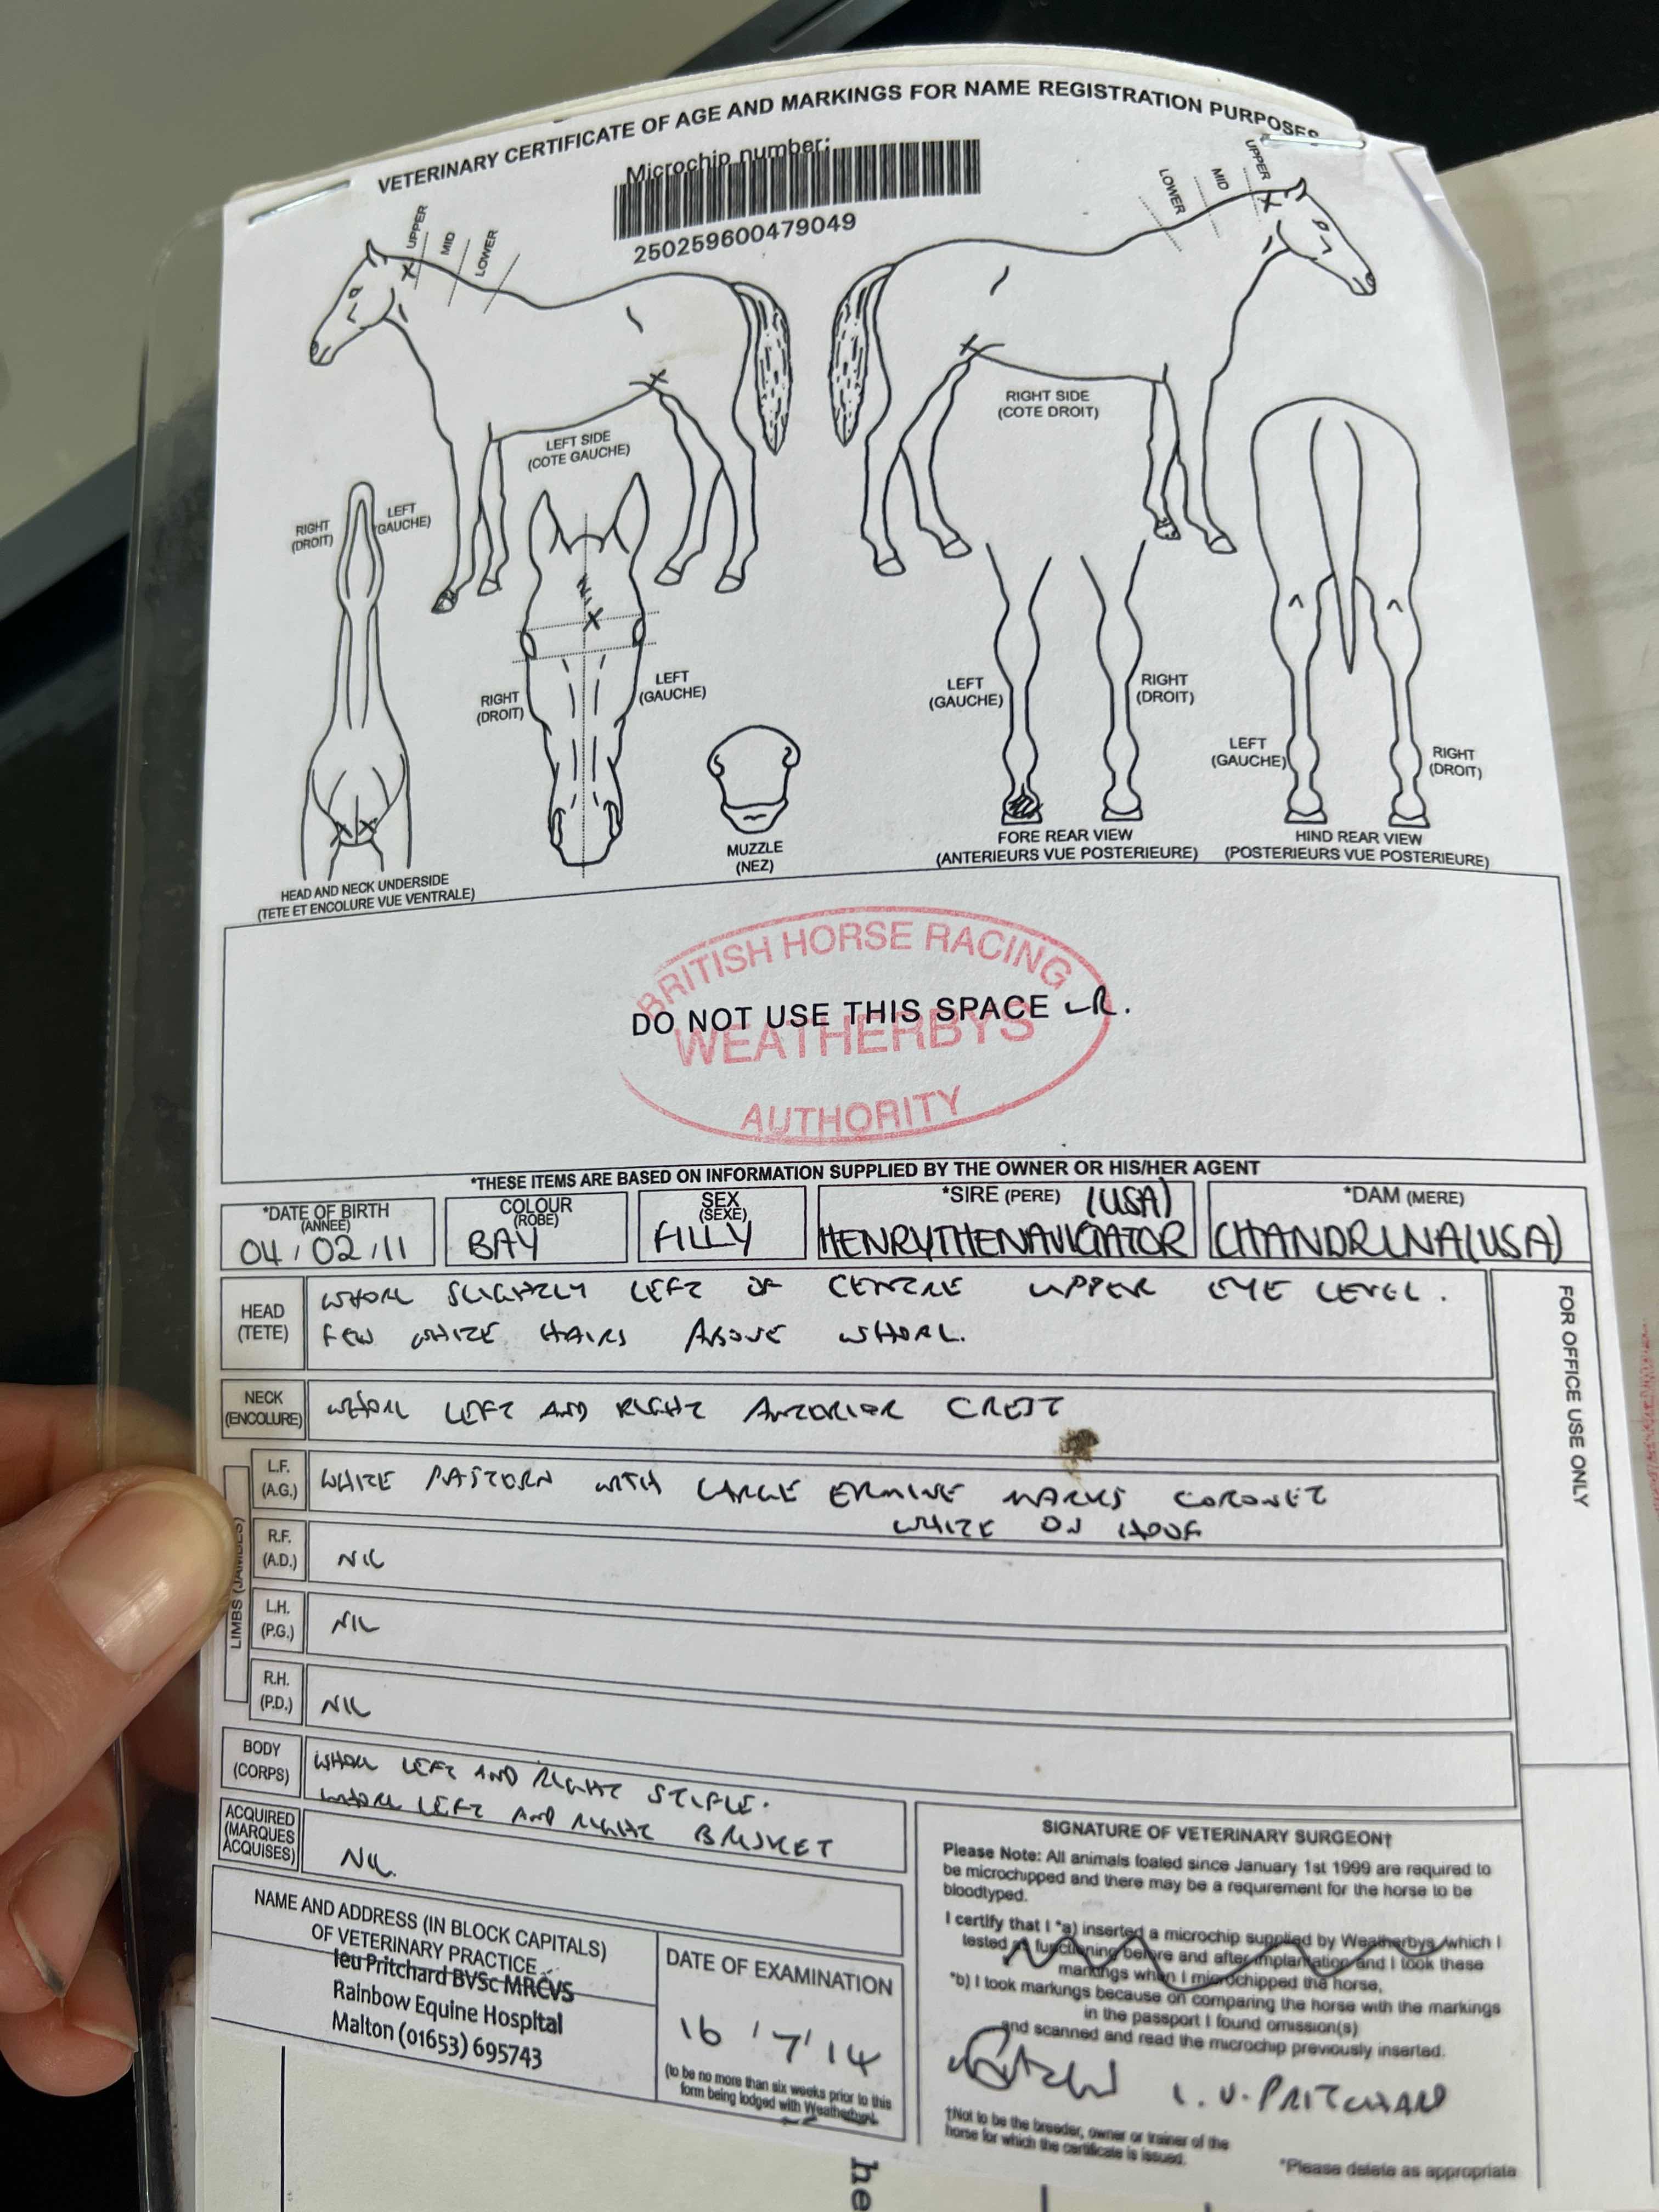 VETERINARY CERTIFICATE OF AGE AND MARKINGS FOR NAME REGISTRATION PURPOSES
Microchip number:
250259600479049
UPPER
MID
LOWER
LOWER
MID
UPPER
LEFT SIDE
(COTE GAUCHE)
RIGHT SIDE
(COTE DROIT)
RIGHT
(DROIT)
LEFT
(GAUCHE)
RIGHT
(DROIT)
LEFT
(GAUCHE)
LEFT
(GAUCHE)
RIGHT
(DROIT)
LEFT
(GAUCHE)
RIGHT
(DROIT)
HEAD AND NECK UNDERSIDE
(TETE ET ENCOLURE VUE VENTRALE)
MUZZLE
(NEZ)
FORE REAR VIEW
(ANTERIEURS VUE POSTERIEURE)
HIND REAR VIEW
(POSTERIEURS VUE POSTERIEURE)
BRITISH HORSE RACING
DO NOT USE THIS SPACE
WEATHERBYS
AUTHORITY
*THESE ITEMS ARE BASED ON INFORMATION SUPPLIED BY THE OWNER OR HIS/HER AGENT
*DATE OF BIRTH
(ANNEE)
04/02/11
COLOUR
(ROBE)
BAY
SEX
(SEXE)
FILLY
*SIRE (PERE) (USA)
HENRYTHENAVIGATOR
*DAM (MERE)
CHANDRINA(USA)
HEAD
(TETE)
WHORL SLIGHTLY LEFT OF CENTRE UPPER EYE LEVEL.
FEW WHITE HAIRS ABOVE WHORL.
FOR OFFICE USE ONLY
NECK
(ENCOLURE)
WHORL LEFT AND RIGHT ANTERIOR CREST
LIMBS (JAMBES)
L.F.
(A.G.)
WHITE PASTERN WITH LARGE ERMINE MARKS CORONET
WHITE ON HOOF
R.F.
(A.D.)
NIL
L.H.
(P.G.)
NIL
R.H.
(P.D.)
NIL
BODY
(CORPS)
WHORL LEFT AND RIGHT STIFLE.
WHORL LEFT AND RIGHT BRISKET
ACQUIRED
(MARQUES
ACQUISES)
NIL.
NAME AND ADDRESS (IN BLOCK CAPITALS)
OF VETERINARY PRACTICE
Ieu Pritchard BVSc MRCVS
Rainbow Equine Hospital
Malton (01653) 695743
DATE OF EXAMINATION
16/7/14
(to be no more than six weeks prior to this
form being lodged with Weatherbys)
SIGNATURE OF VETERINARY SURGEON†
Please Note: All animals foaled since January 1st 1999 are required to
be microchipped and there may be a requirement for the horse to be
bloodtyped.
I certify that I *a) inserted a microchip supplied by Weatherbys which I
tested as functioning before and after implantation and I took these
markings when I microchipped the horse,
*b) I took markings because on comparing the horse with the markings
in the passport I found omission(s)
and scanned and read the microchip previously inserted.
I. U. PRITCHARD
†Not to be the breeder, owner or trainer of the
horse for which the certificate is issued.
*Please delete as appropriate
he